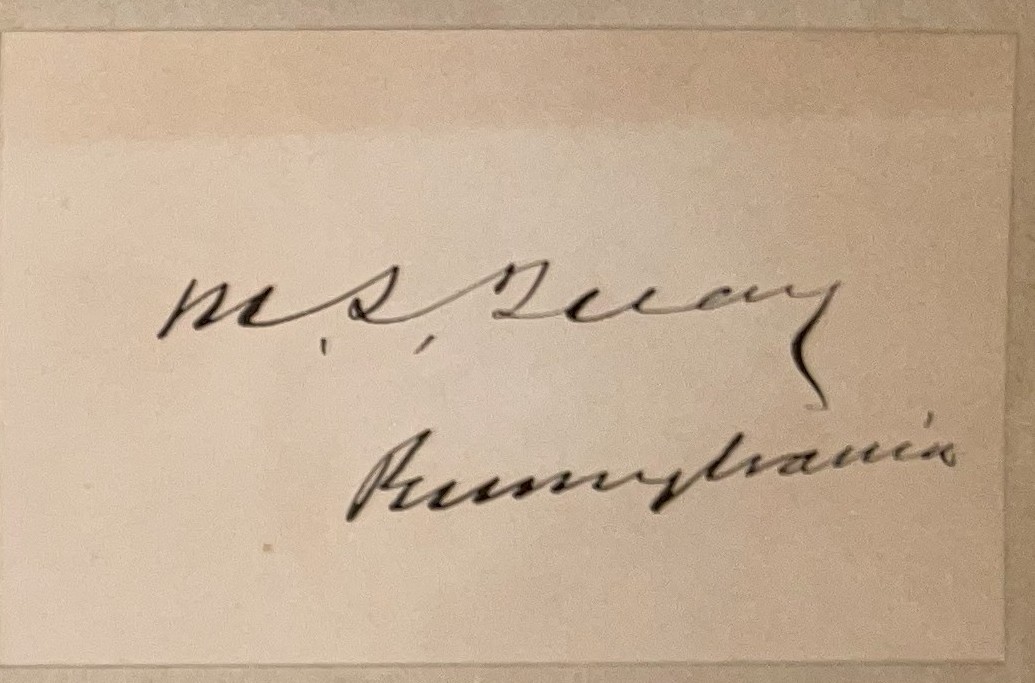 M. S. Quay
Pennsylvania